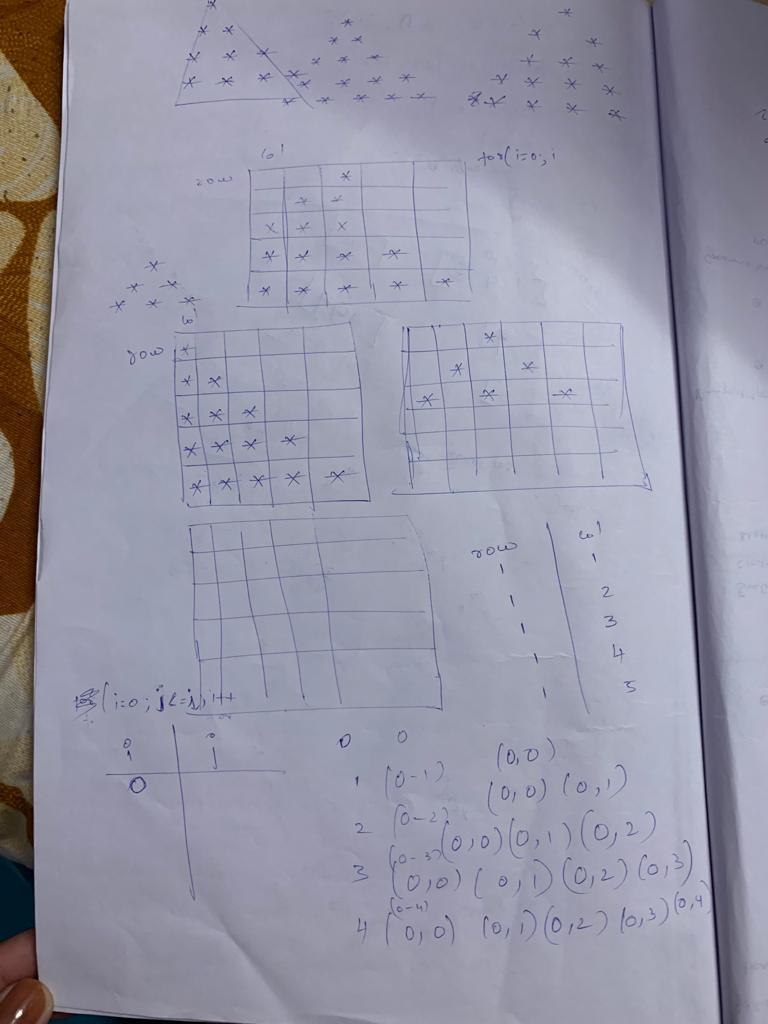 col
row
for(i=0; i
col
row
row col
1 1
1 2
1 3
1 4
1 5
(i=0; j<=i; i++
i j
0
0 0 (0,0)
1 (0-1) (0,0) (0,1)
2 (0-2) (0,0) (0,1) (0,2)
3 (0-3) (0,0) (0,1) (0,2) (0,3)
4 (0-4) (0,0) (0,1) (0,2) (0,3) (0,4)